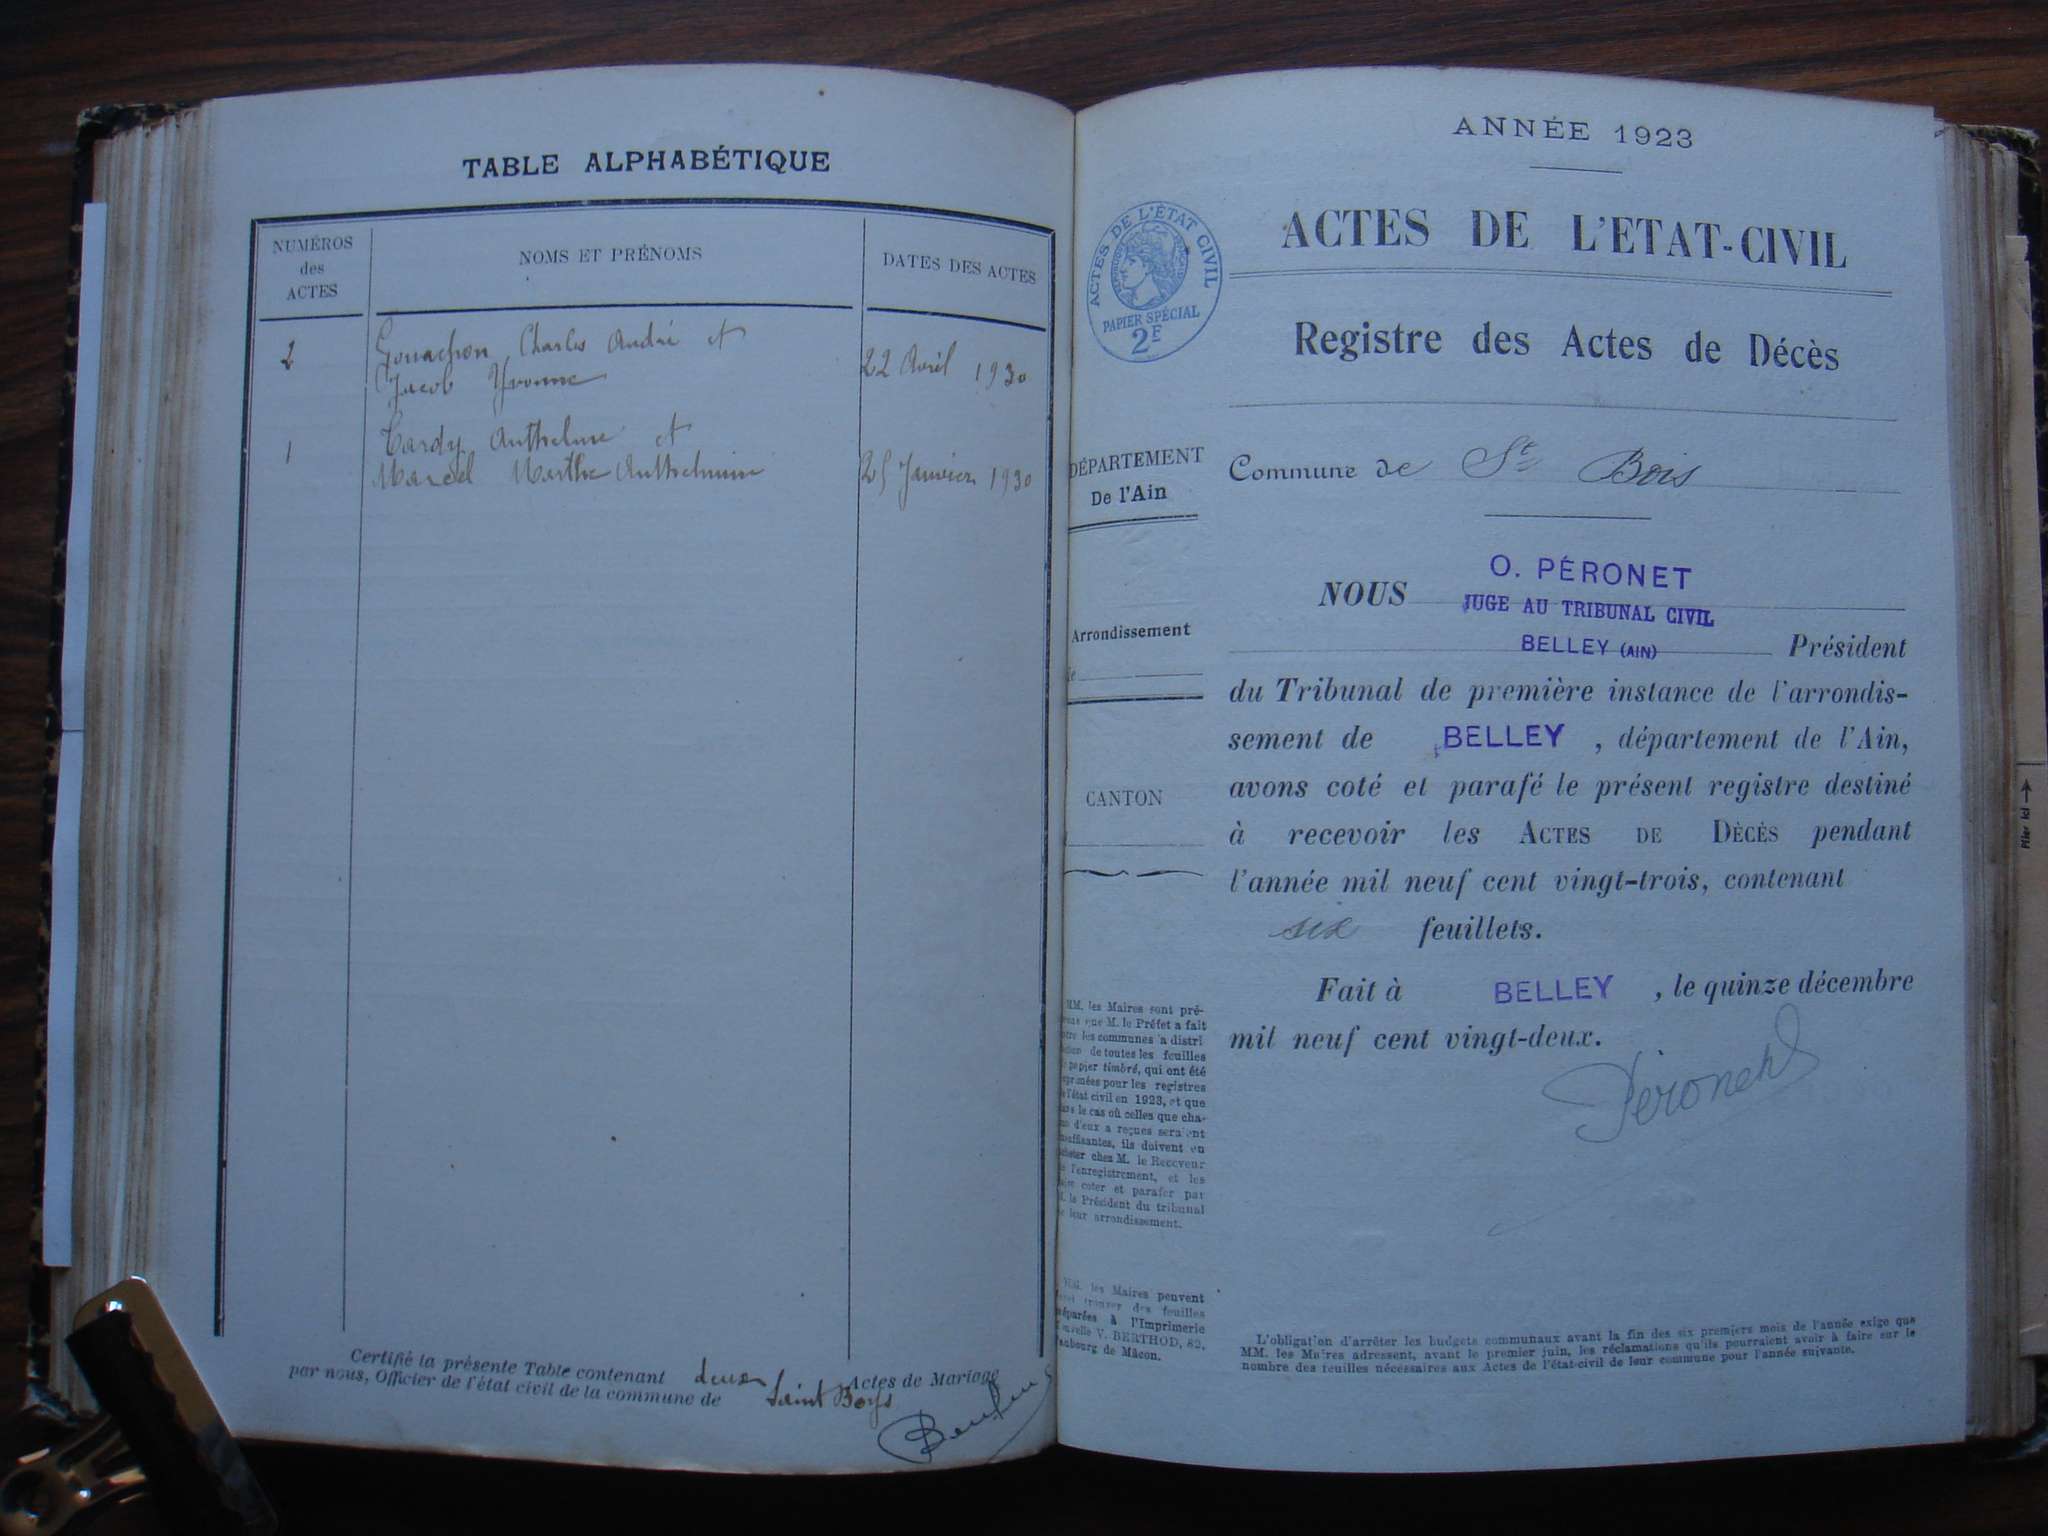 TABLE ALPHABÉTIQUE
NUMÉROS
des
ACTES
NOMS ET PRÉNOMS
DATES DES ACTES
2
Charles André et
Jacob Yvonne
22 Avril 1930
1
Tardy Anthelme et
Marcel Marthe Anthelmine
25 Janvier 1930
Certifié la présente Table contenant deux Actes de Mariage
par nous, Officier de l'état civil de la commune de Saint Boys
ANNÉE 1923
ACTES DE L'ÉTAT CIVIL
PAPIER SPÉCIAL
2F
ACTES DE L'ETAT-CIVIL
Registre des Actes de Décès
DÉPARTEMENT
De l'Ain
Arrondissement
CANTON
Commune de St Bois
NOUS O. PÉRONET
JUGE AU TRIBUNAL CIVIL
BELLEY (AIN) Président
du Tribunal de première instance de l'arrondis-
sement de BELLEY, département de l'Ain,
avons coté et parafé le présent registre destiné
à recevoir les ACTES DE DÉCÈS pendant
l'année mil neuf cent vingt-trois, contenant
six feuillets.
Fait à BELLEY, le quinze décembre
mil neuf cent vingt-deux.
Péronet
MM. les Maires sont pré-
que M. le Préfet a fait
les communes a distri
de toutes les feuilles
papier timbré, qui ont été
pour les registres
l'état civil en 1923, et que
le cas où celles que cha-
d'eux a reçues seraient
ils doivent en
chez M. le Receveur
l'enregistrement, et les
coter et parafer par
le Président du tribunal
leur arrondissement.
les Maires peuvent
trouver des feuilles
à l'Imprimerie
V. BERTHOD, 82,
de Mâcon.
L'obligation d'arrêter les budgets communaux avant la fin des six premiers mois de l'année exige que
MM. les Maires adressent, avant le premier juin, les réclamations qu'ils pourraient avoir à faire sur le
nombre des feuilles nécessaires aux Actes de l'état-civil de leur commune pour l'année suivante.